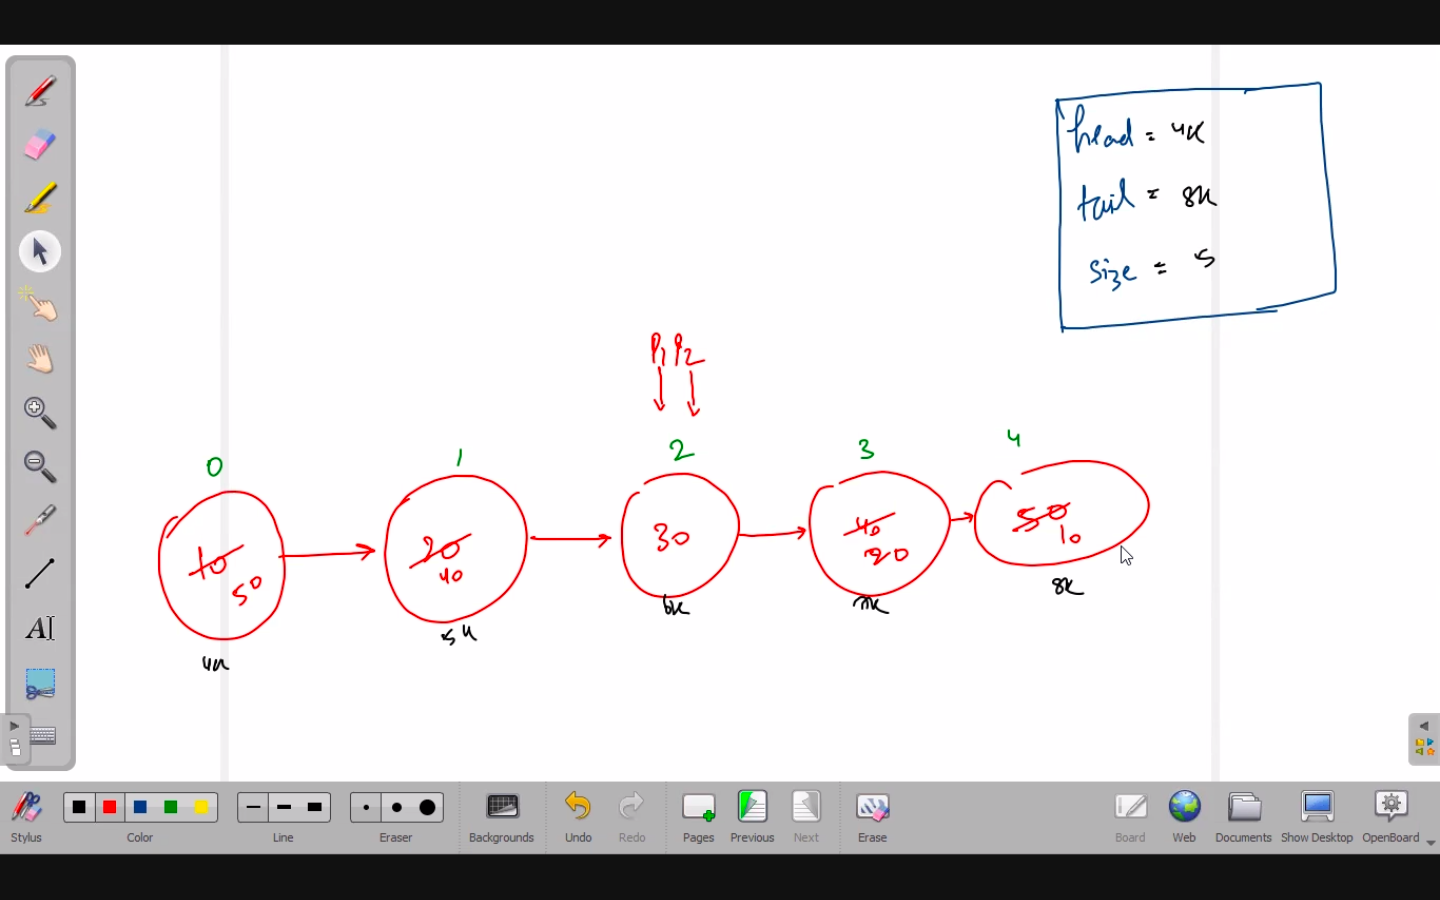 head = 4K
tail = 8K
size = 5
P1 P2
0 1 2 3 4
10 20 30 40 50
50 40 20 10
4K 5K 6K 7K 8K
A
Stylus Color Line Eraser Backgrounds Undo Redo Pages Previous Next Erase Board Web Documents Show Desktop OpenBoard